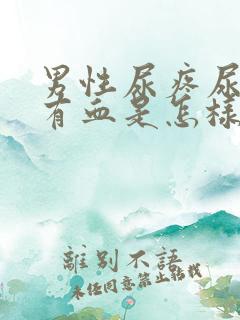 男性尿疼尿
有血是怎样
離别不語
未经同意禁止转载